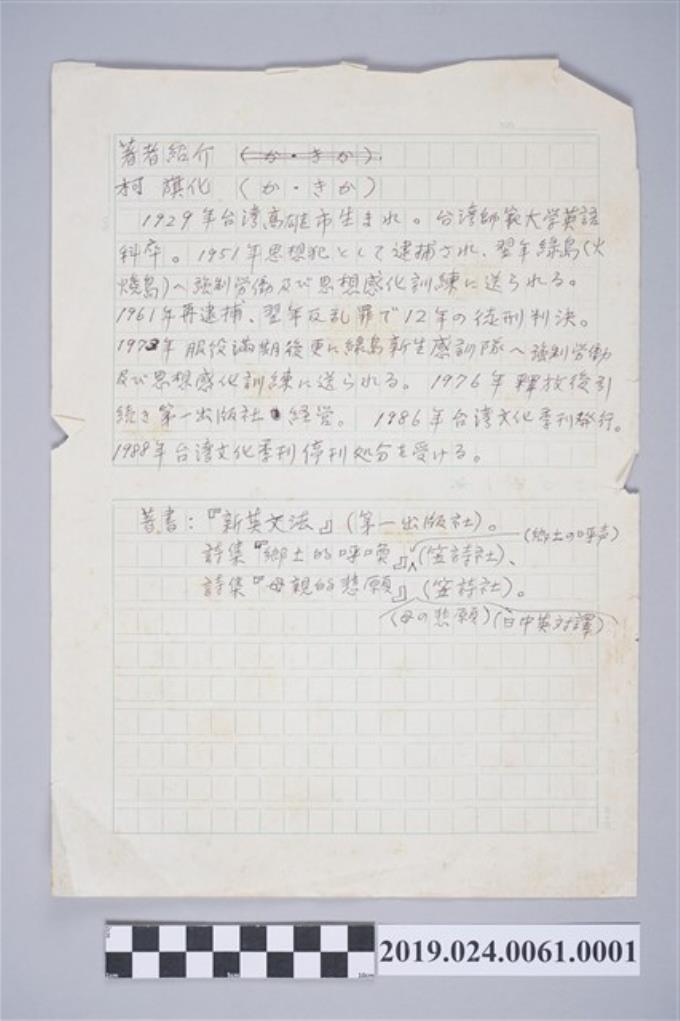 著者紹介 (か・きか)
柯 旗化 (か・きか)
1929年台湾高雄市生まれ。台湾師範大学英語
科卒。1951年思想犯として逮捕され、翌年緑島(火
燒島)へ強制労働及び思想感化訓練に送られる。
1961年再逮捕、翌年反乱罪で12年の徒刑判決。
1973年 服役満期後更に緑島新生感訓隊へ強制労働
及び思想感化訓練に送られる。1976年釋放後引
続き第一出版社 経営。 1986年台湾文化季刊発行。
1988年台湾文化季刊停刊処分を受ける。
著書:『新英文法』(第一出版社)。
(郷土の呼声)
詩集『鄉土的呼喚』(笠詩社)、
詩集『母親的悲願』(笠詩社)。
(母の悲願)(日中英対譯)
2019.024.0061.0001